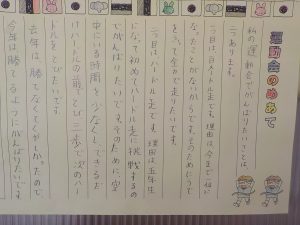 運動会のめあて
私の運動会でがんばりたいことは、
二つあります。
一つ目は、百メートル走です。理由は、今まで一位に
なったことがないからです。そのためにうで
をふって全力で走りたいです。
二つ目は、ハードル走です。理由は五年生
になって初めてハードル走に挑戦するの
でがんばりたいです。そのために、空
中にいる時間を少なくしてできるだ
けハードルの前でとび三歩で次のハー
ドルをとびたいです。
去年は、勝てなくてくやしかったので、
今年は勝てるようにがんばりたいです。